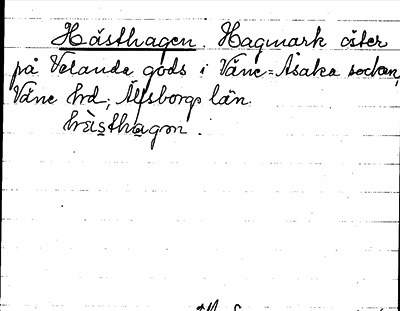 Hästhagen. Hagmark öster
på Velanda gods i Väne-Åsaka socken,
Väne hrd, Älfsborgs län.